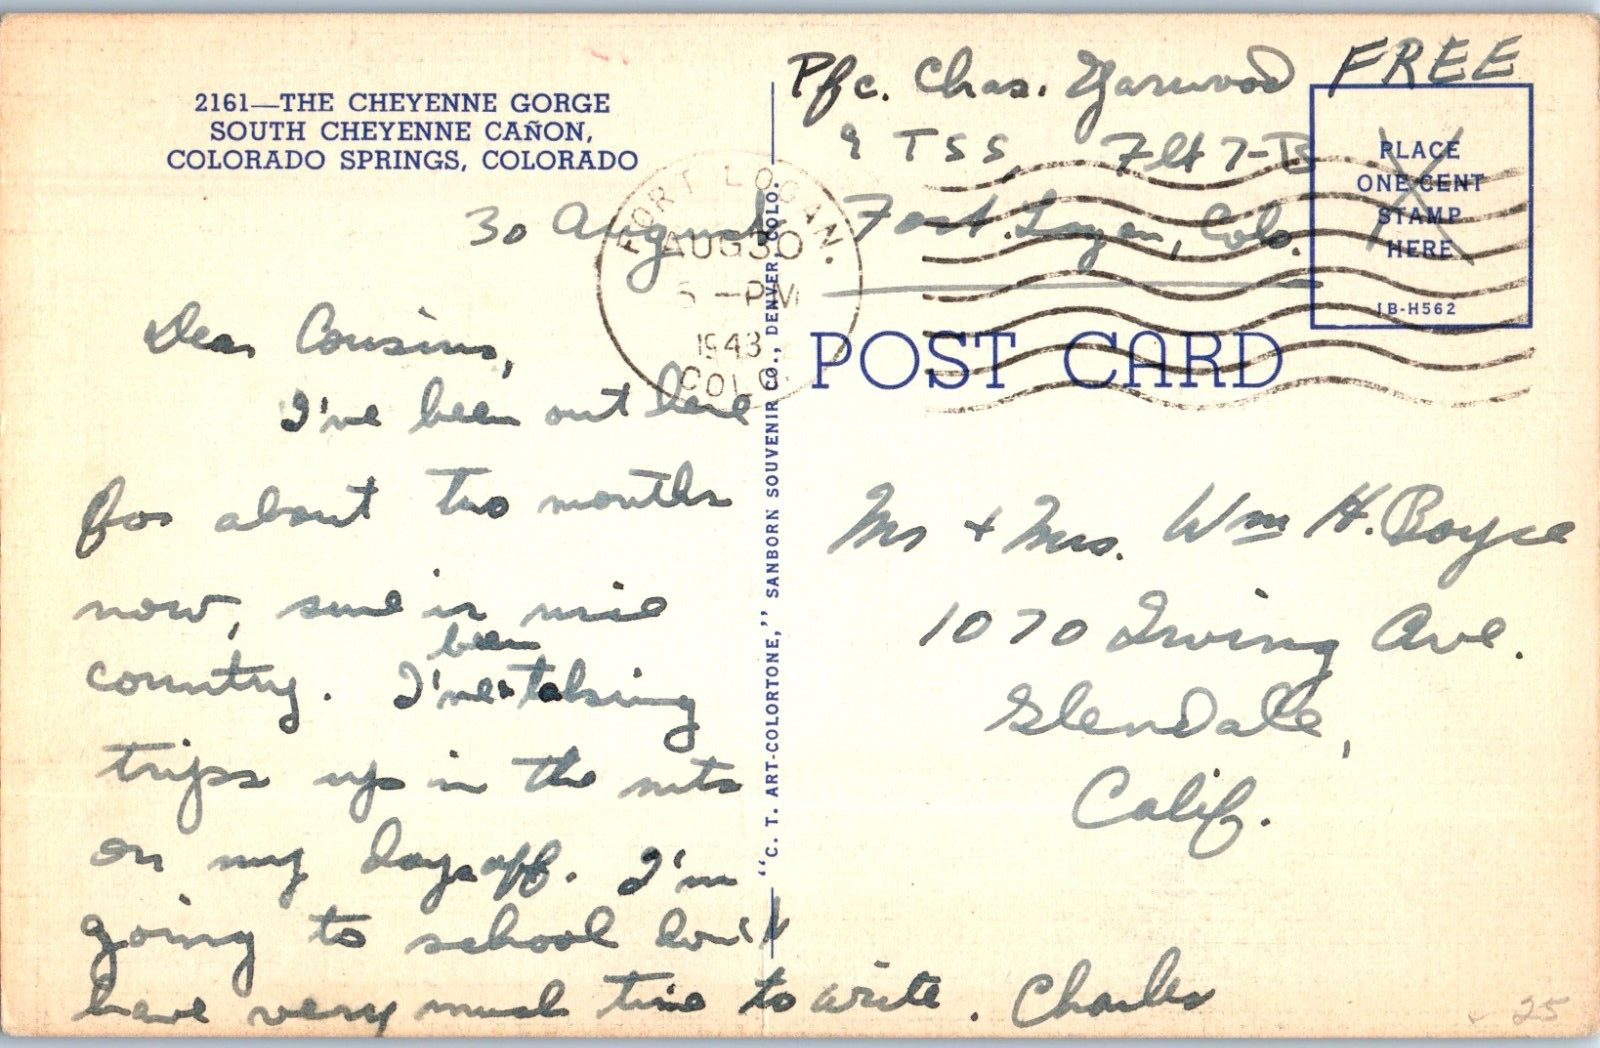 2161—THE CHEYENNE GORGE
SOUTH CHEYENNE CAÑON,
COLORADO SPRINGS, COLORADO
30 August
Dear Cousins,
I've been out here
for about two months
now, sure is nice
country. I've been taking
trips up in the mts
on my days off. I'm
going to school don't
have very much time to write. Charles
"C. T. ART-COLORTONE," SANBORN SOUVENIR CO., DENVER, COLO.
FORT LOGAN.
AUG 30
5 -PM
1943
COLO.
Pfc. Chas. Yarwood
9 TSS, Flt 7-B
Fort Logan, Colo.
FREE
PLACE
ONE CENT
STAMP
HERE
1B-H562
POST CARD
Mr + Mrs. Wm H. Boyce
1070 Irving Ave.
Glendale,
Calif.
25